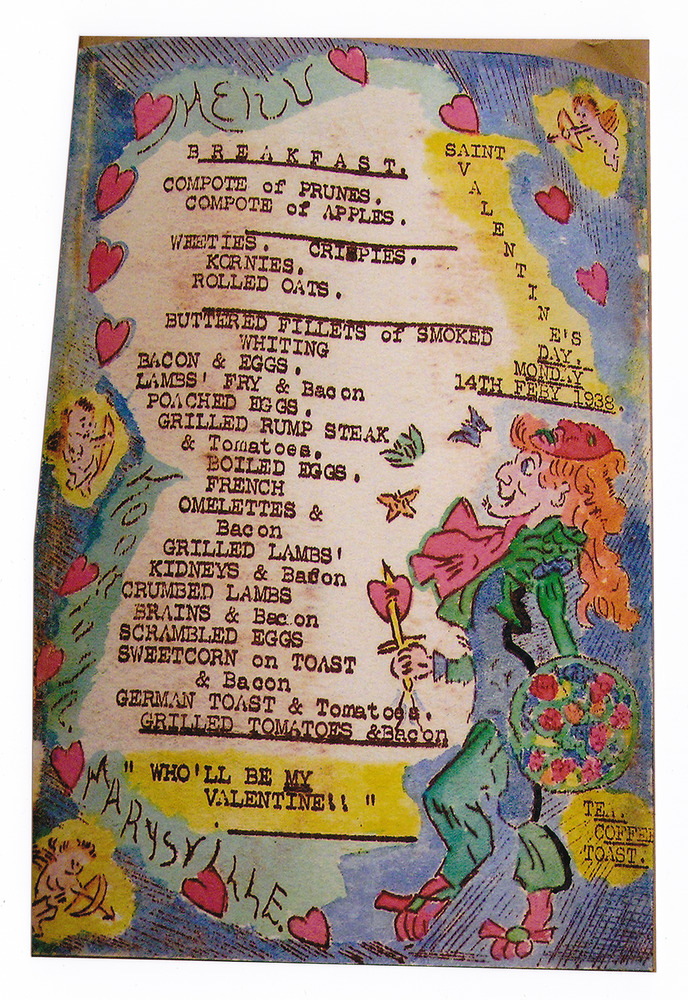 MENU
BREAKFAST.
COMPOTE of PRUNES.
COMPOTE of APPLES.
WEETIES. CRISPIES.
KORNIES.
ROLLED OATS.
BUTTERED FILLETS of SMOKED
WHITING
BACON & EGGS.
LAMBS' FRY & Bacon
POACHED EGGS.
GRILLED RUMP STEAK
& Tomatoes.
BOILED EGGS.
FRENCH
OMELETTES &
Bacon
GRILLED LAMBS'
KIDNEYS & Bacon
CRUMBED LAMBS
BRAINS & Bacon
SCRAMBLED EGGS
SWEETCORN on TOAST
& Bacon
GERMAN TOAST & Tomatoes.
GRILLED TOMATOES &Bacon
" WHO'LL BE MY
VALENTINE!! "
SAINT
VALENTINE'S
DAY.
MONDAY
14TH FEBY 1938.
MARYSVILLE.
TEA.
COFFEE
TOAST.